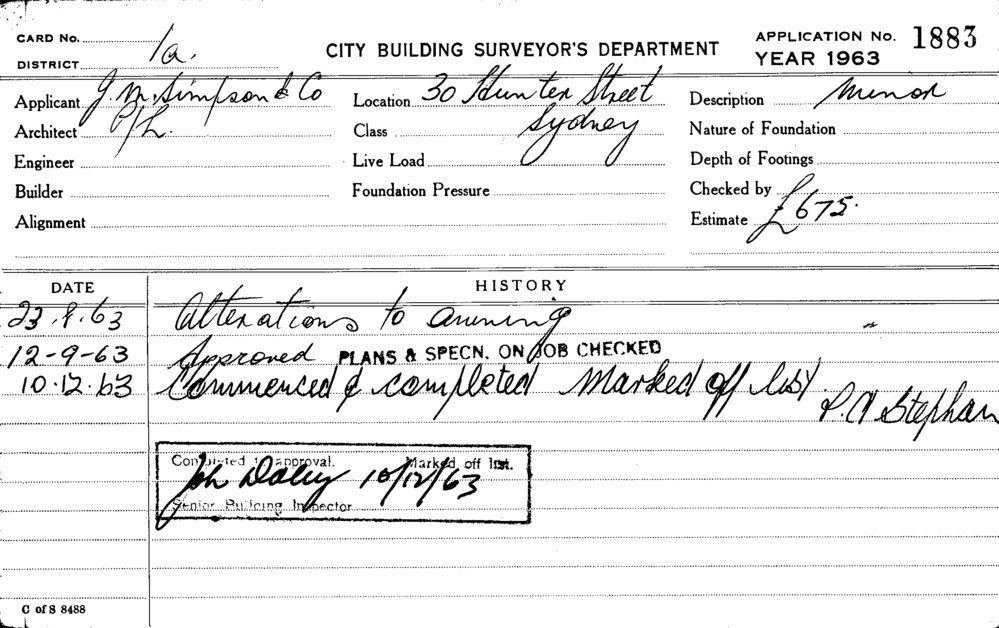 CARD No.
DISTRICT 1a.
CITY BUILDING SURVEYOR'S DEPARTMENT
APPLICATION No. 1883
YEAR 1963
Applicant J. M. Simpson & Co
Location 30 Hunter Street
Description Minor
Architect P/L.
Class Sydney
Nature of Foundation
Engineer
Live Load
Depth of Footings
Builder
Foundation Pressure
Checked by
Alignment
Estimate £675.
DATE HISTORY
23.8.63 Alterations to awning "
12-9-63 Approved PLANS & SPECN. ON JOB CHECKED
10.12.63 Commenced & completed Marked off list
Stephan
Completed to approval. Marked off list.
Joh Daley 10/12/63
Senior Building Inspector
C of S 8488